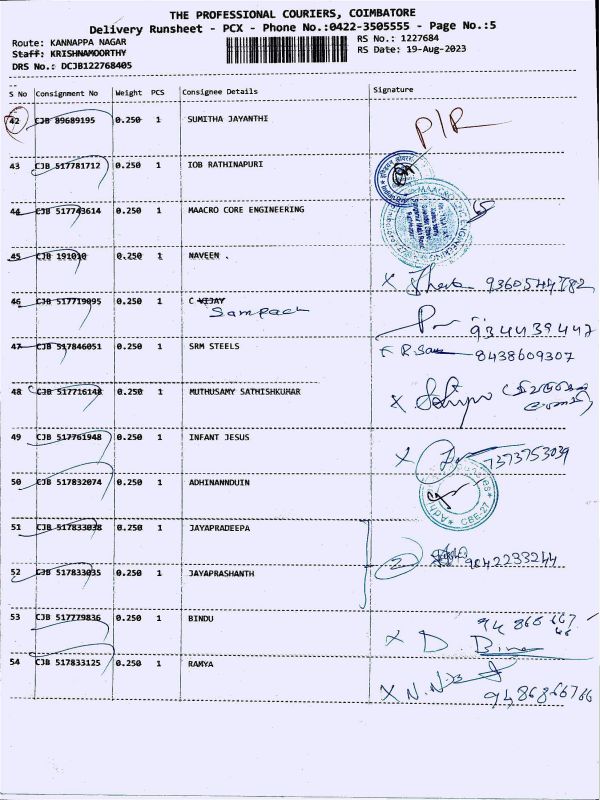 THE PROFESSIONAL COURIERS, COIMBATORE
Delivery Runsheet - PCX - Phone No.:0422-3505555 - Page No.:5
Route: KANNAPPA NAGAR RS No.: 1227684
Staff: KRISHNAMOORTHY RS Date: 19-Aug-2023
DRS No.: DCJB122768405
S No Consignment No Weight PCS Consignee Details Signature
42 CJB 89689195 0.250 1 SUMITHA JAYANTHI P/R
43 CJB 517781712 0.250 1 IOB RATHINAPURI
44 CJB 517743614 0.250 1 MAACRO CORE ENGINEERING
45 CJB 191010 0.250 1 NAVEEN .
46 CJB 517719095 0.250 1 C VIJAY
Sampath 9344439447
47 CJB 517846051 0.250 1 SRM STEELS 8438609307
48 CJB 517716148 0.250 1 MUTHUSAMY SATHISHKUMAR
49 CJB 517761948 0.250 1 INFANT JESUS 7373753039
50 CJB 517832074 0.250 1 ADHINANNDUIN
CBE-27
51 CJB 517833038 0.250 1 JAYAPRADEEPA
2 9842233244
52 CJB 517833035 0.250 1 JAYAPRASHANTH
53 CJB 517779836 0.250 1 BINDU
54 CJB 517833125 0.250 1 RAMYA